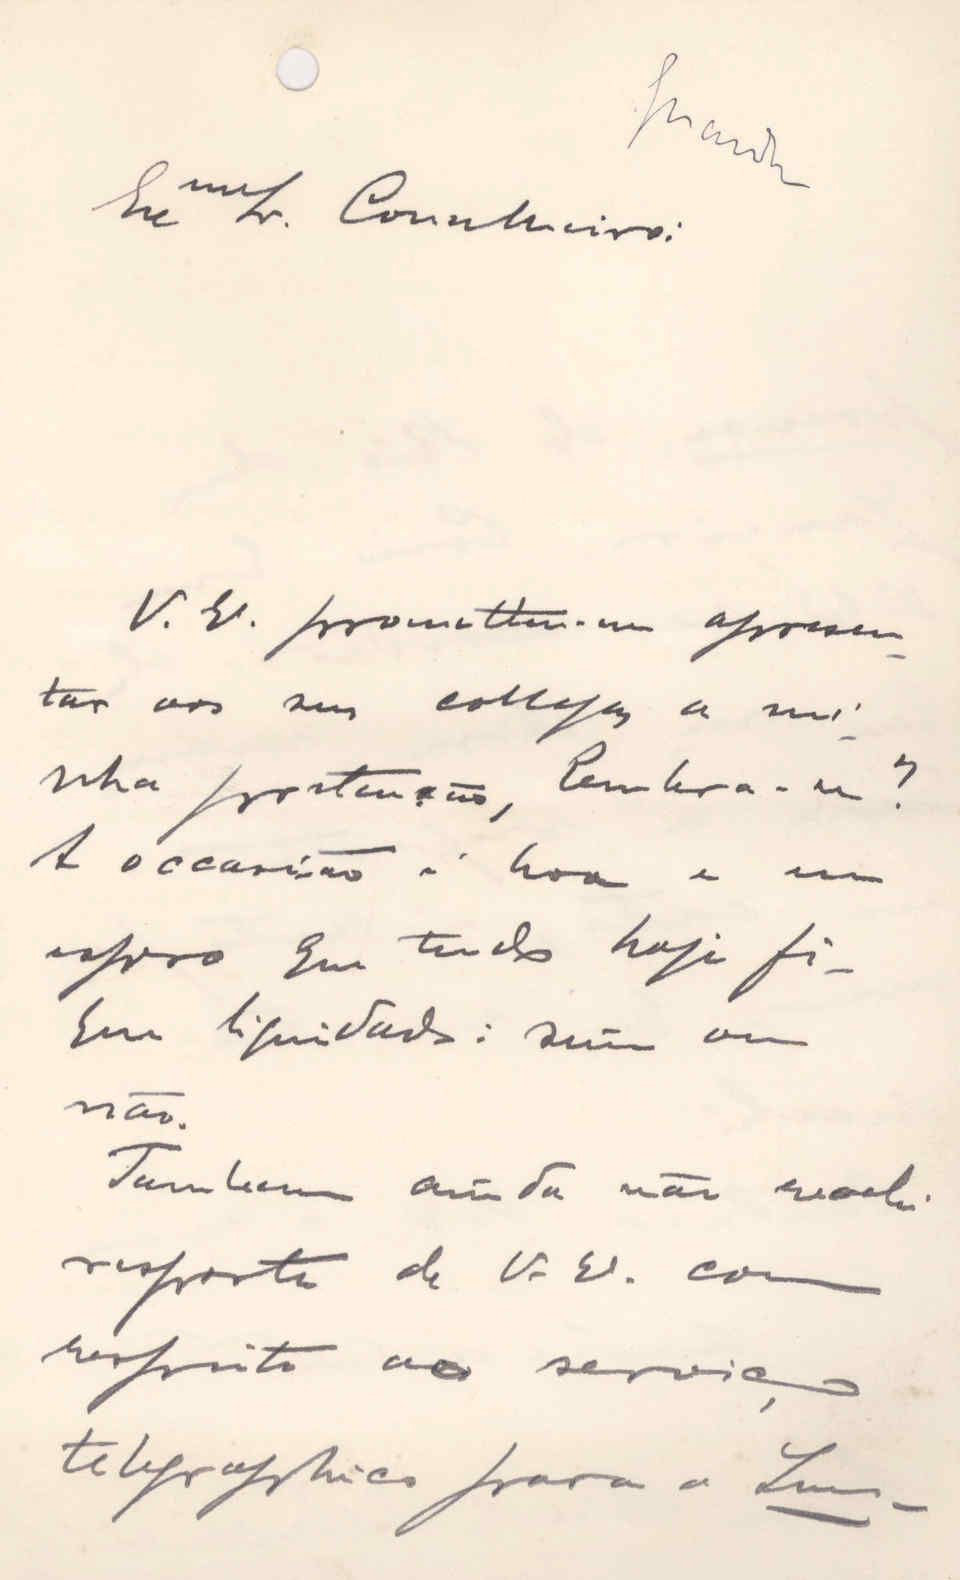 Guarda
Exmo Sr. Conselheiro:
V. Ex. prometteu-me apresen-
tar aos seus collegas a mi-
nha pretenção, lembra-se?
A occasião é boa e eu
espero que tudo hoje fi-
que liquidado: sim ou
não.
Tambem ainda não recebi
resposta de V. Ex. com
respeito ao serviço
telegraphico para a